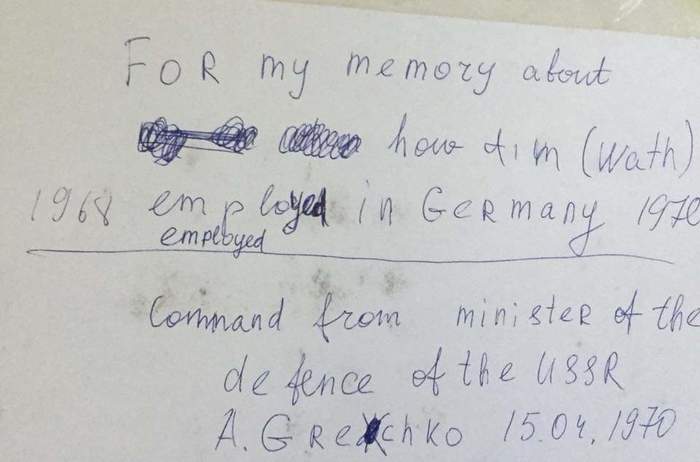 FOR my memory about
how tim (wath)
1968 employed in Germany 1970
employed
Command from minister of the
defence of the USSR
A. Grechko 15.04.1970